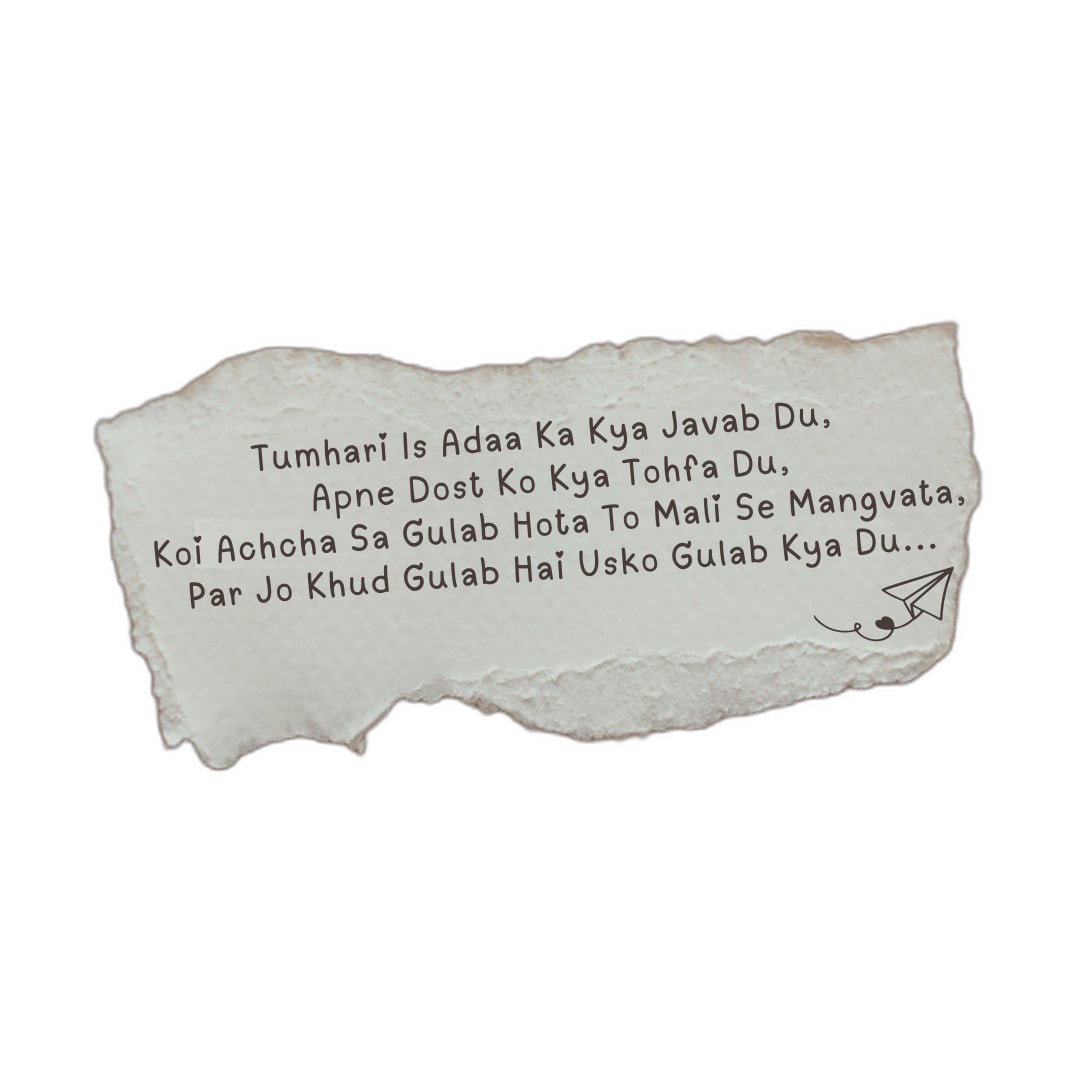 Tumhari Is Adaa Ka Kya Javab Du,
Apne Dost Ko Kya Tohfa Du,
Koi Achcha Sa Gulab Hota To Mali Se Mangvata,
Par Jo Khud Gulab Hai Usko Gulab Kya Du...